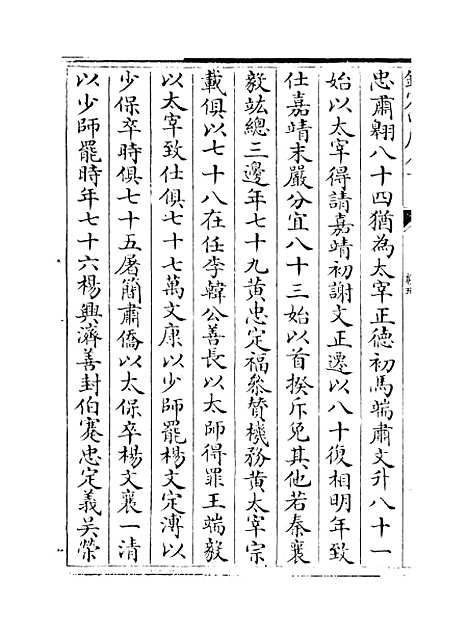 忠肅翺八十四猶為太宰正德初馬端肅文升八十一
始以太宰得請嘉靖初謝文正遷以八十復相明年致
仕嘉靖末嚴分宜八十三始以首揆斥免其他若秦襄
毅竑總三邊年七十九黃忠定福叅贊機務黃太宰宗
載俱以七十八在任李韓公善長以太師得罪王端毅
以太宰致仕俱七十七萬文康以少師罷楊文定溥以
少保卒時俱七十五屠簡肅僑以太保卒楊文襄一清
以少師罷時年七十六楊興濟善封伯蹇忠定義吴榮